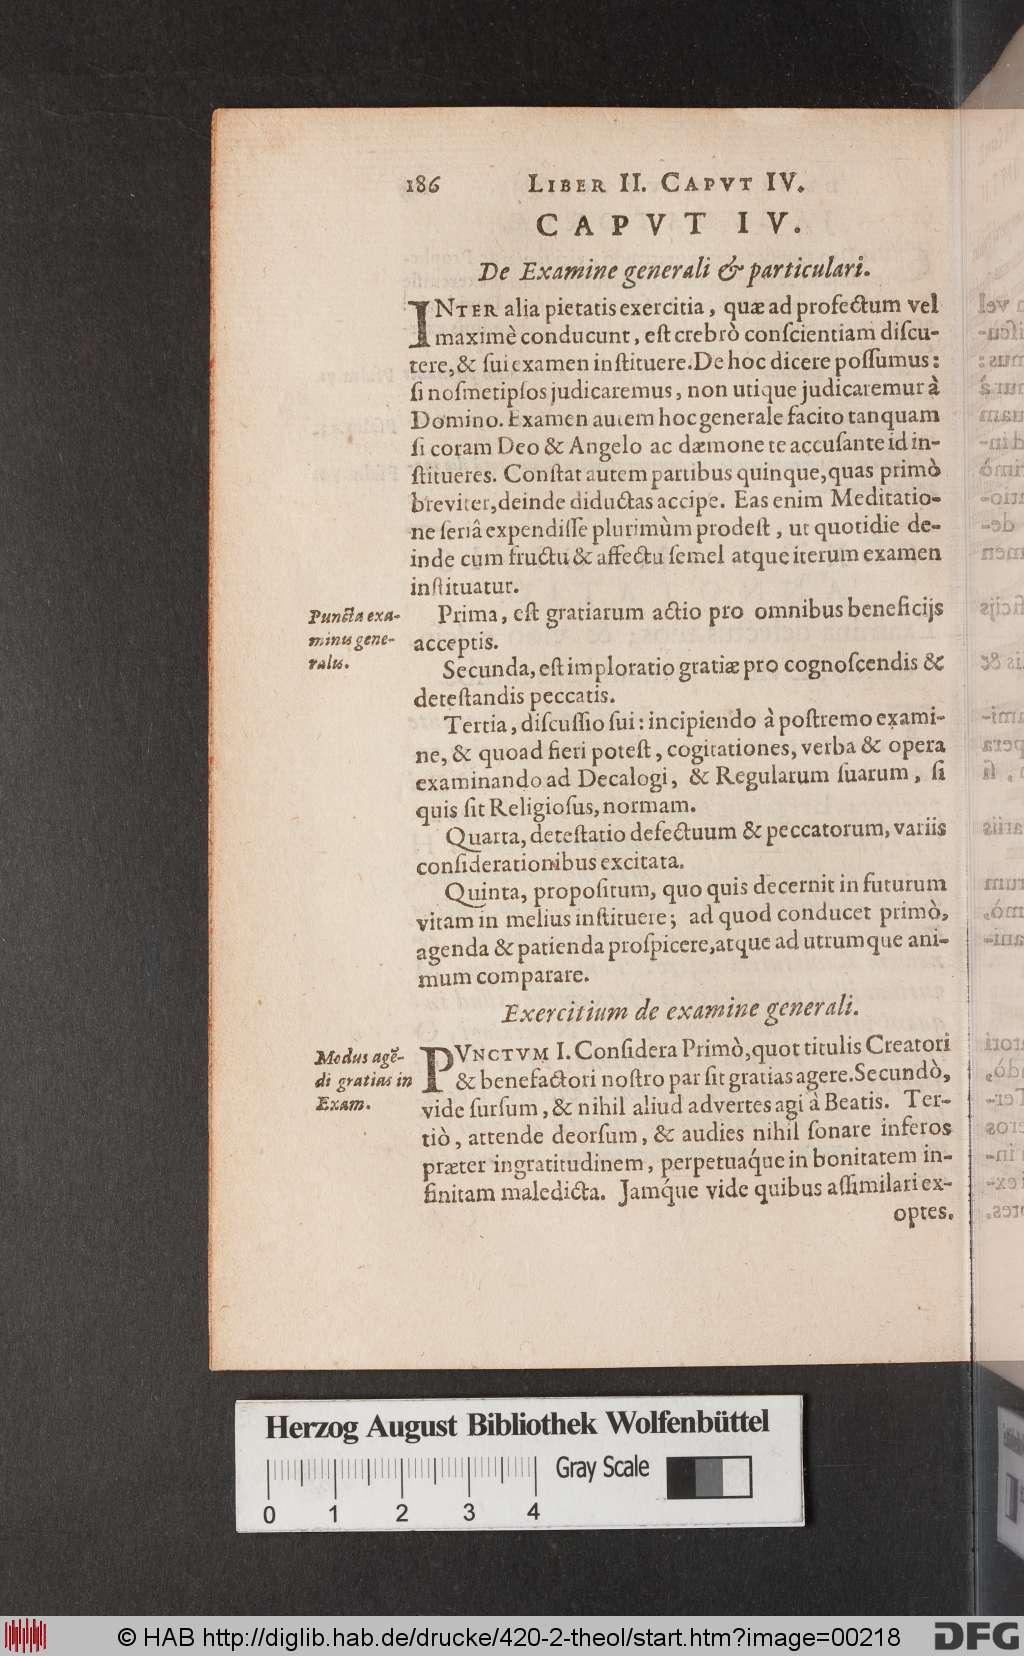 186 LIBER II. CAPVT IV.
CAPVT IV.
De Examine generali & particulari.
INTER alia pietatis exercitia, quæ ad profectum vel
maximè conducunt, eſt crebrò conſcientiam diſcu-
tere, & ſui examen inſtituere. De hoc dicere poſſumus:
ſi noſmetipſos judicaremus, non utique judicaremur à
Domino. Examen autem hoc generale facito tanquam
ſi coram Deo & Angelo ac dæmone te accuſante id in-
ſtitueres. Conſtat autem partibus quinque, quas primò
breviter, deinde diductas accipe. Eas enim Meditatio-
ne ſeriâ expendiſſe plurimùm prodeſt, ut quotidie de-
inde cum fructu & affectu ſemel atque iterum examen
inſtituatur.
Puncta exa-
minis gene-
ralis.
Prima, eſt gratiarum actio pro omnibus beneficijs
acceptis.
Secunda, eſt imploratio gratiæ pro cognoſcendis &
deteſtandis peccatis.
Tertia, diſcuſſio ſui: incipiendo à poſtremo exami-
ne, & quoad fieri poteſt, cogitationes, verba & opera
examinando ad Decalogi, & Regularum ſuarum, ſi
quis ſit Religioſus, normam.
Quarta, deteſtatio defectuum & peccatorum, variis
conſiderationibus excitata.
Quinta, propoſitum, quo quis decernit in futurum
vitam in melius inſtituere; ad quod conducet primò,
agenda & patienda proſpicere, atque ad utrumque ani-
mum comparare.
Exercitium de examine generali.
Modus agē-
di gratias in
Exam.
PVNCTVM I. Conſidera Primò, quot titulis Creatori
& benefactori noſtro par ſit gratias agere. Secundò,
vide ſurſum, & nihil aliud advertes agi à Beatis. Ter-
tiò, attende deorſum, & audies nihil ſonare inferos
præter ingratitudinem, perpetuaq́ue in bonitatem in-
finitam maledicta. Jamq́ue vide quibus aſſimilari ex-
optes.
Herzog August Bibliothek Wolfenbüttel
Gray Scale
0 1 2 3 4
© HAB http://diglib.hab.de/drucke/420-2-theol/start.htm?image=00218
DFG